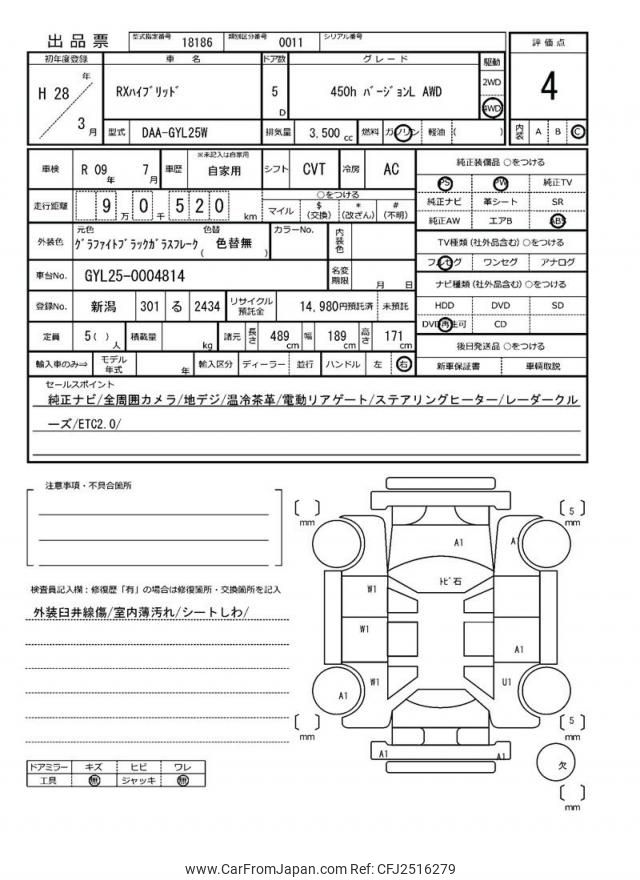 出品票 型式指定番号 18186 類別区分番号 0011 シリアル番号
初年度登録 車 名 ドア数 グレード 駆動 評価点
H 28 年 3 月 RXハイブリッド 5 D 450h バージョンL AWD 2WD 4WD 4
型式 DAA-GYL25W 排気量 3,500 cc 燃料 ガソリン 軽油 ( ) 内装 A B C
車検 R 09 年 7 月 車歴 ※未記入は自家用 自家用 シフト CVT 冷房 AC
純正装備品 ○をつける
PS PW 純正TV
純正ナビ 革シート SR
純正AW エアB ABS
走行距離 9 万 0 千 5 2 0 km
○をつける
マイル $ (交換) * (改ざん) # (不明)
外装色 元色 グラファイトブラックガラスフレーク 色替 ( 色替無 ) カラーNo. 内装色
TV種類 (社外品含む) ○をつける
フルセグ ワンセグ アナログ
車台No. GYL25-0004814 名変期限 月 日
ナビ種類 (社外品含む) ○をつける
HDD DVD SD
DVD再生可 CD
登録No. 新潟 301 る 2434 リサイクル預託金 14,980円預託済 未預託
定員 5 ( ) 人 積載量 kg 諸元 長さ 489 cm 幅 189 cm 高さ 171 cm
後日発送品 ○をつける
新車保証書 車輌取説
輸入車のみ⇒ モデル年式 年 輸入区分 ディーラー 並行 ハンドル 左 右
セールスポイント
純正ナビ/全周囲カメラ/地デジ/温冷茶革/電動リアゲート/ステアリングヒーター/レーダークル
ーズ/ETC2.0/
注意事項・不具合箇所
検査員記入欄：修復歴「有」の場合は修復箇所・交換箇所を記入
外装臼井線傷/室内薄汚れ/シートしわ/
ドアミラー キズ ヒビ ワレ
工具 無 ジャッキ 無
mm
5
mm
A1
A1
トビ石
W1
W1
A1
W1
U1
A1
mm
5
mm
A1
A1
欠
mm
www.CarFromJapan.com Ref: CFJ2516279